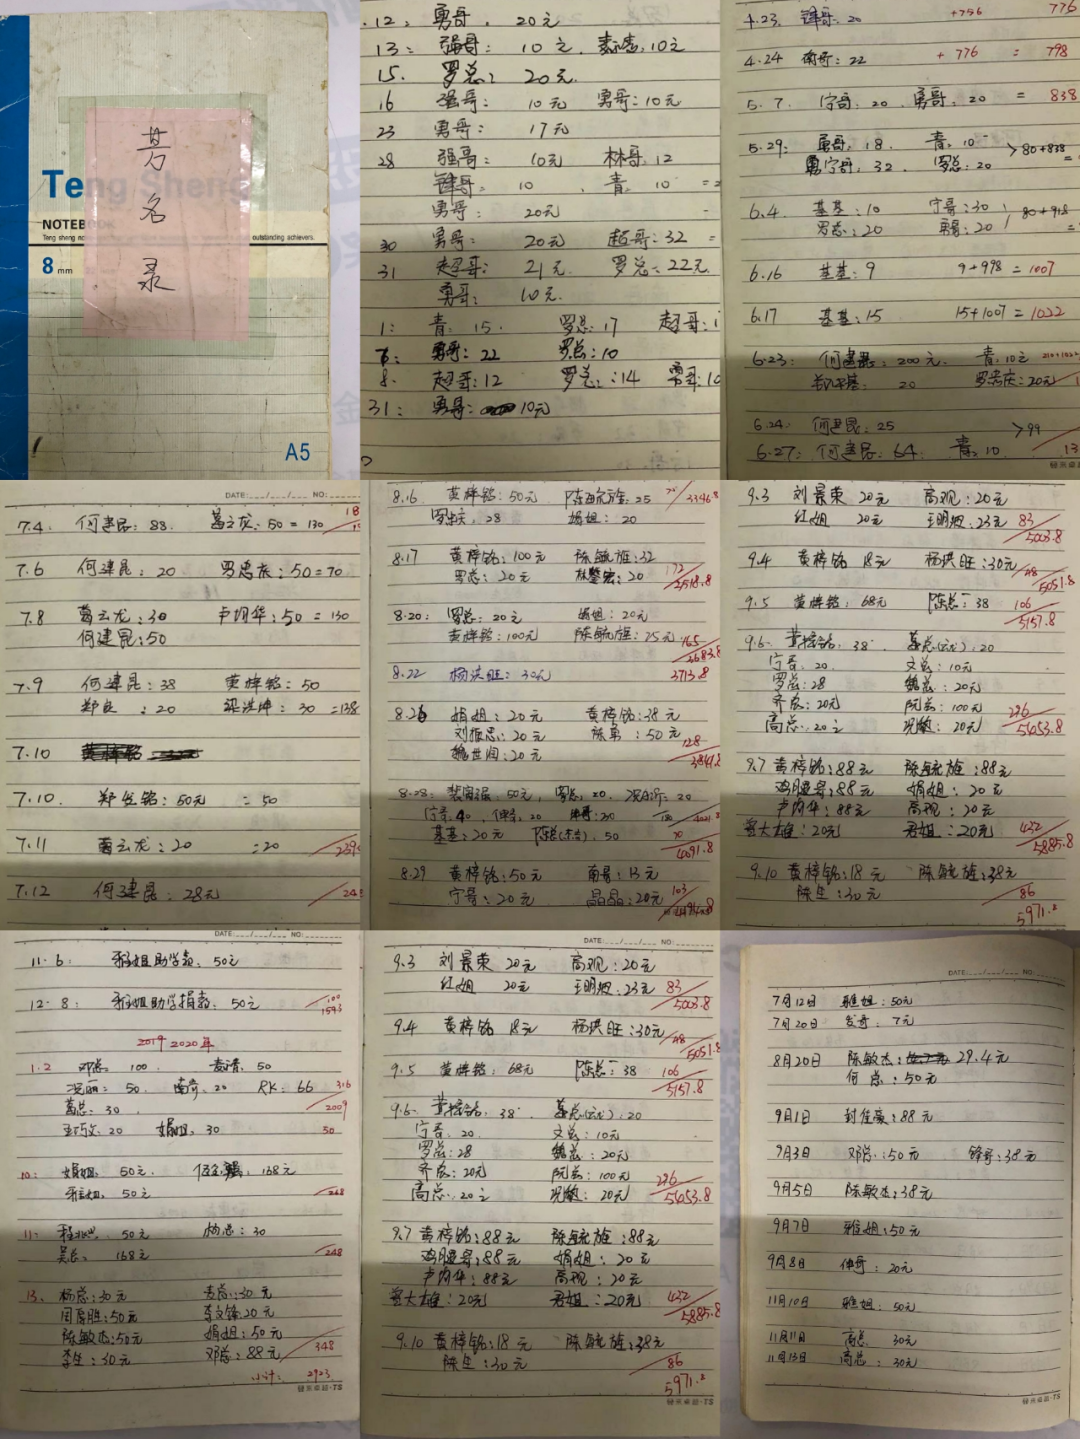 芳
名
录
Teng Sheng
NOTEB
outstanding achievers.
8 mm
A5
12: 勇哥. 20元
13: 强哥: 10元 10元
15. 罗总: 20元.
16 强哥: 10元 勇哥: 10元
23 勇哥: 17元
28 强哥: 10元 林哥. 12
锋哥: 10 青. 10
勇哥: 20元
30 勇哥: 20元 超哥: 32 =
31 超哥: 21元 罗总: 22元.
勇哥: 10元.
1: 青: 15. 罗总: 17 超哥:
勇哥: 22 罗总: 10
8. 超哥: 12 罗总: 14 勇哥: 10
31: 勇哥: 10元
4.23. 锋哥: 20 +756 776
4.24 南哥: 22 +776 = 798
5.7. 宁哥: 20. 勇哥: 20 = 838
5.29: 勇哥, 18. 青: 10 >80+838
宁哥, 32. 罗总: 20 =
6.4. 基基: 10 宁哥: 30 80+918
罗总: 20 勇哥: 20 =
6.16 基基: 9 9+998=1007
6.17 基基: 15 15+1007=1022
6.23: 何建昆: 200元. 青: 10元
20 20元
6.24: 何建昆: 25 >99
6.27: 何建昆: 64. 青: 10 13
DATE: NO:
7.4. 何建昆: 88. 葛云龙: 50 = 130
7.6 何建昆: 20 50=70
7.8 葛云龙: 30 卢均华: 50 = 130
何建昆: 50
7.9 何建昆: 38 黄梓铭: 50
郑 : 20 梁洪坤: 30 =138
7.10
7.10. 郑 铭: 50元 =50
7.11 葛云龙: 20 =20
7.12 何建昆: 28元
8.16. 黄梓铭: 50元 陈毓旌. 25 3346.8
28 娟姐: 20
8.17 黄梓铭: 100元 陈毓旌: 32
罗总: 20元 20 172
8.20: 罗总: 20元 娟姐: 20元
黄梓铭: 100元 陈毓旌: 25元 165
3683.8
8.22 杨洪旺: 30元 3713.8
8.26 娟姐: 20元 黄梓铭: 38元
刘振忠: 20元 陈勇: 50元 128
魏世润: 20元
8.28: 50元, 罗总. 20. 20
宁哥. 40. 伟哥: 20 20
基基: 20元 陈总 . 50 4091.8
8.29 黄梓铭: 50元 南哥: 15元
宁哥: 20元 晶晶: 20元 103
9.3 刘景荣 20元 高观: 20元
红姐 20元 王明 : 23元 83
5003.8
9.4 黄梓铭 18元 杨洪旺: 30元 48
5051.8
9.5 黄梓铭: 68元 陈总: 38 106
5157.8
9.6. 黄梓铭: 38. 葛总 : 20
宁哥. 20. 文总: 10元
罗总: 28 魏总: 20元
齐总: 20元 阮总: 100元 296
高总: 20元 20元 5453.8
9.7 黄梓铭: 88元 陈毓旌: 88
鸡腿哥: 88元 娟姐: 20元
卢均华: 88元 高观: 20元
曾大雄: 20元 君姐: 20元 432
5885.8
9.10 黄梓铭: 18元 陈毓旌: 38元
陈生: 30元 86
5971.8
DATE: NO:
11.6: 雅姐助学款: 50元
12.8: 雅姐助学捐款: 50元 100
1593
2019 2020年
1.2 邓总: 100 50
: 50. 南哥. 20 RK: 66 316
葛总. 30 2009
20 娟姐. 30 50
10: 娟姐. 50元. 168元
雅姐. 50元 268
11: 50元 杨总: 30
吴总. 168元 248
13. 杨总: 30元 30元
周 胜: 50元 李文锋: 20元
陈敏杰: 50元 娟姐: 50元
李生: 30元 邓总: 88元 348
小计: 2923
DATE: NO:
9.3 刘景荣 20元 高观: 20元
红姐 20元 王明 : 23元 83
5003.8
9.4 黄梓铭 18元 杨洪旺: 30元 48
5051.8
9.5 黄梓铭: 68元 陈总: 38 106
5157.8
9.6. 黄梓铭: 38. 葛总 : 20
宁哥. 20. 文总: 10元
罗总: 28 魏总: 20元
齐总: 20元 阮总: 100元 296
高总: 20元 20元 5453.8
9.7 黄梓铭: 88元 陈毓旌: 88
鸡腿哥: 88元 娟姐: 20元
卢均华: 88元 高观: 20元
曾大雄: 20元 君姐: 20元 432
5885.8
9.10 黄梓铭: 18元 陈毓旌: 38元
陈生: 30元 86
5971.8
DATE: NO:
7月12日 雅姐: 50元
7月20日 发哥: 7元
8月20日 陈敏杰: 29.4元
何总: 50元
9月1日 封佳豪: 88元
9月3日 邓总: 50元 锋哥: 38元
9月5日 陈敏杰: 38元
9月7日 雅姐: 50元
9月8日 伟哥: 20元
11月10日 雅姐: 50元
11月11日 高总 30元
11月13日 高总: 30元